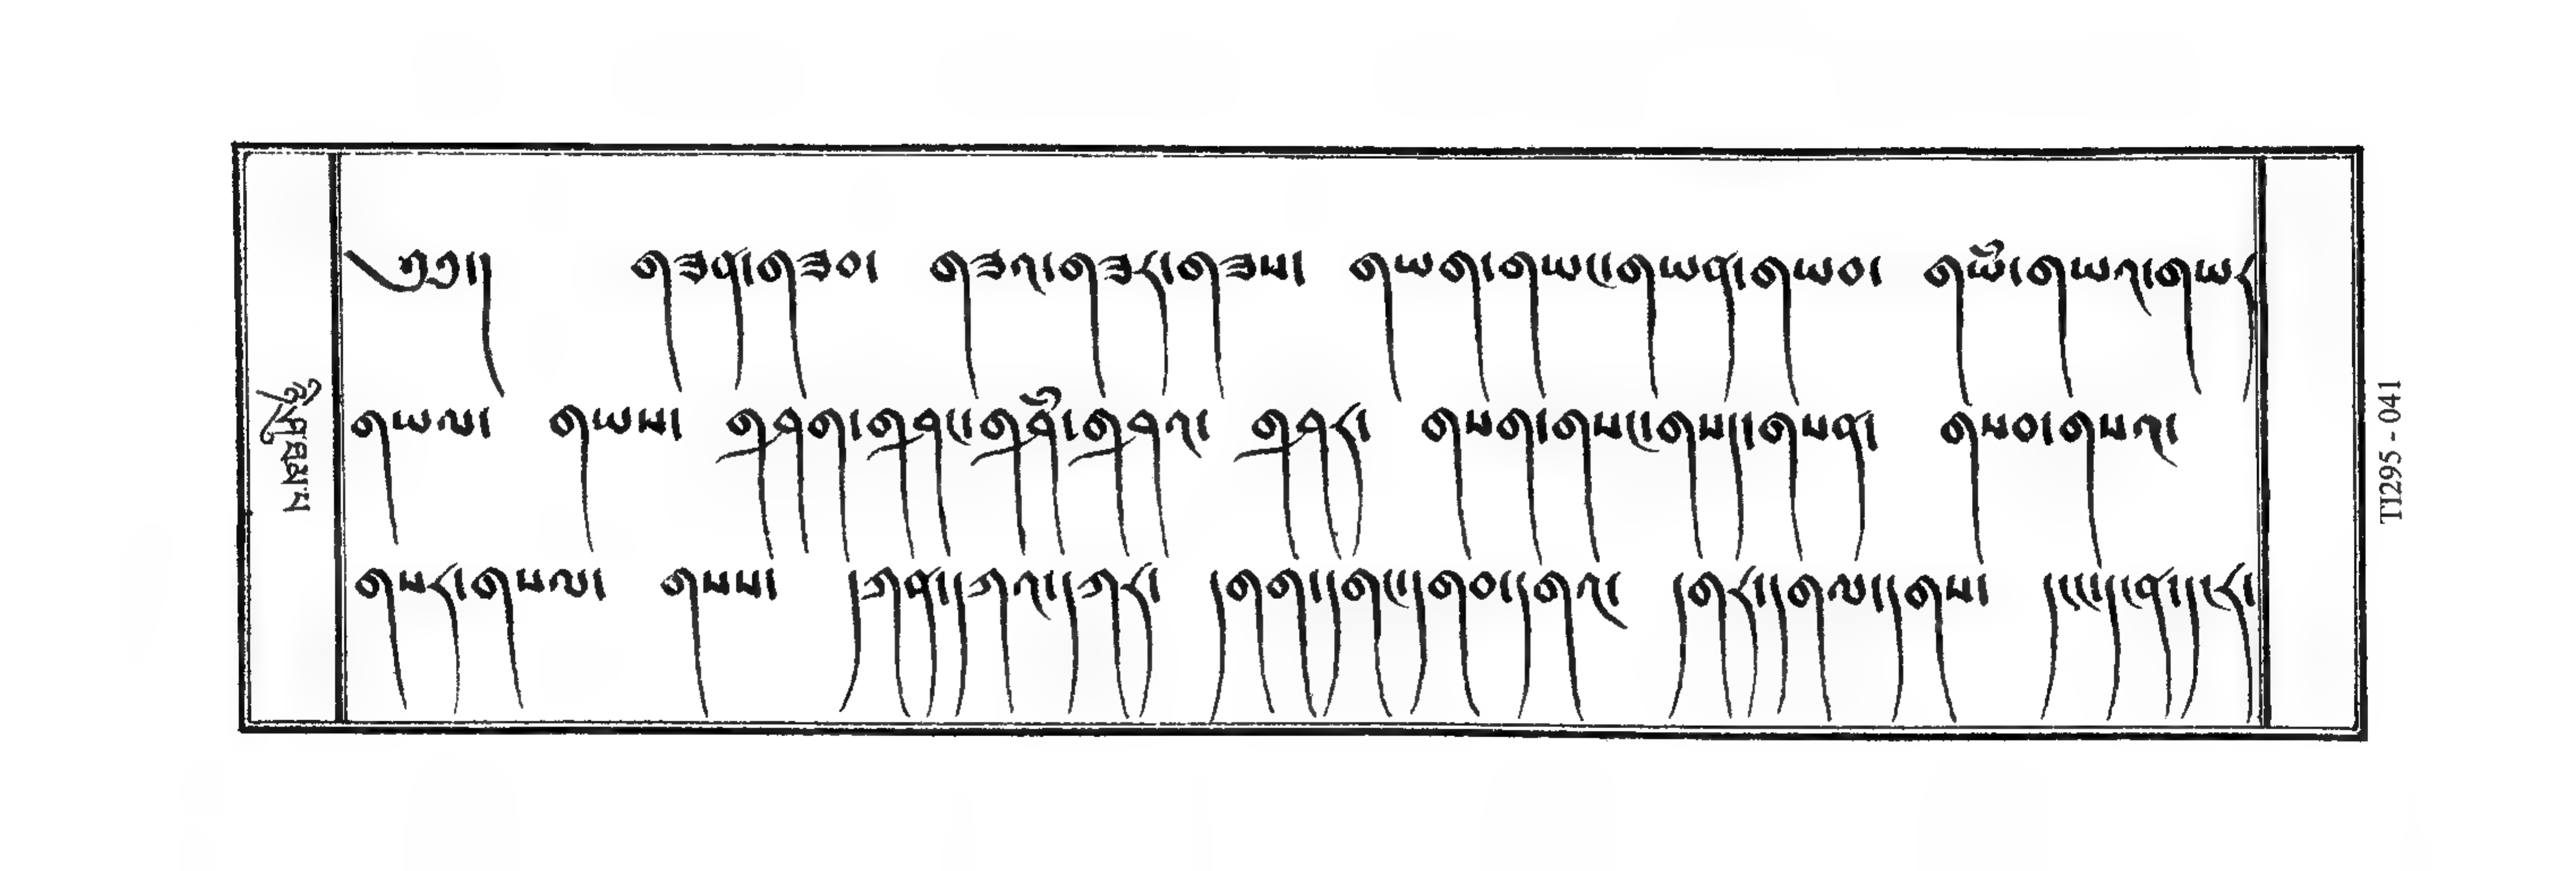 ༄༅། །གཟན། གཟབ། གཟའ། གཟར། གཟས། གཡག། གཡང། གཡན། གཡབ། གཡཾ། གཡའ། གཡར
གཡལ། གཡས། གཤག། གཤང། གཤཾ། གཤའ། གཤར། གསག། གསང། གསད། གསན། གསབ། གསའ།
གསར། གསལ། གསས། དཀན། དཀའ། དཀར། དགག། དགང། དགབ། དགའ། དགར། དགལ། དགས། དངང། དངན། དངར།
TI295 - 041